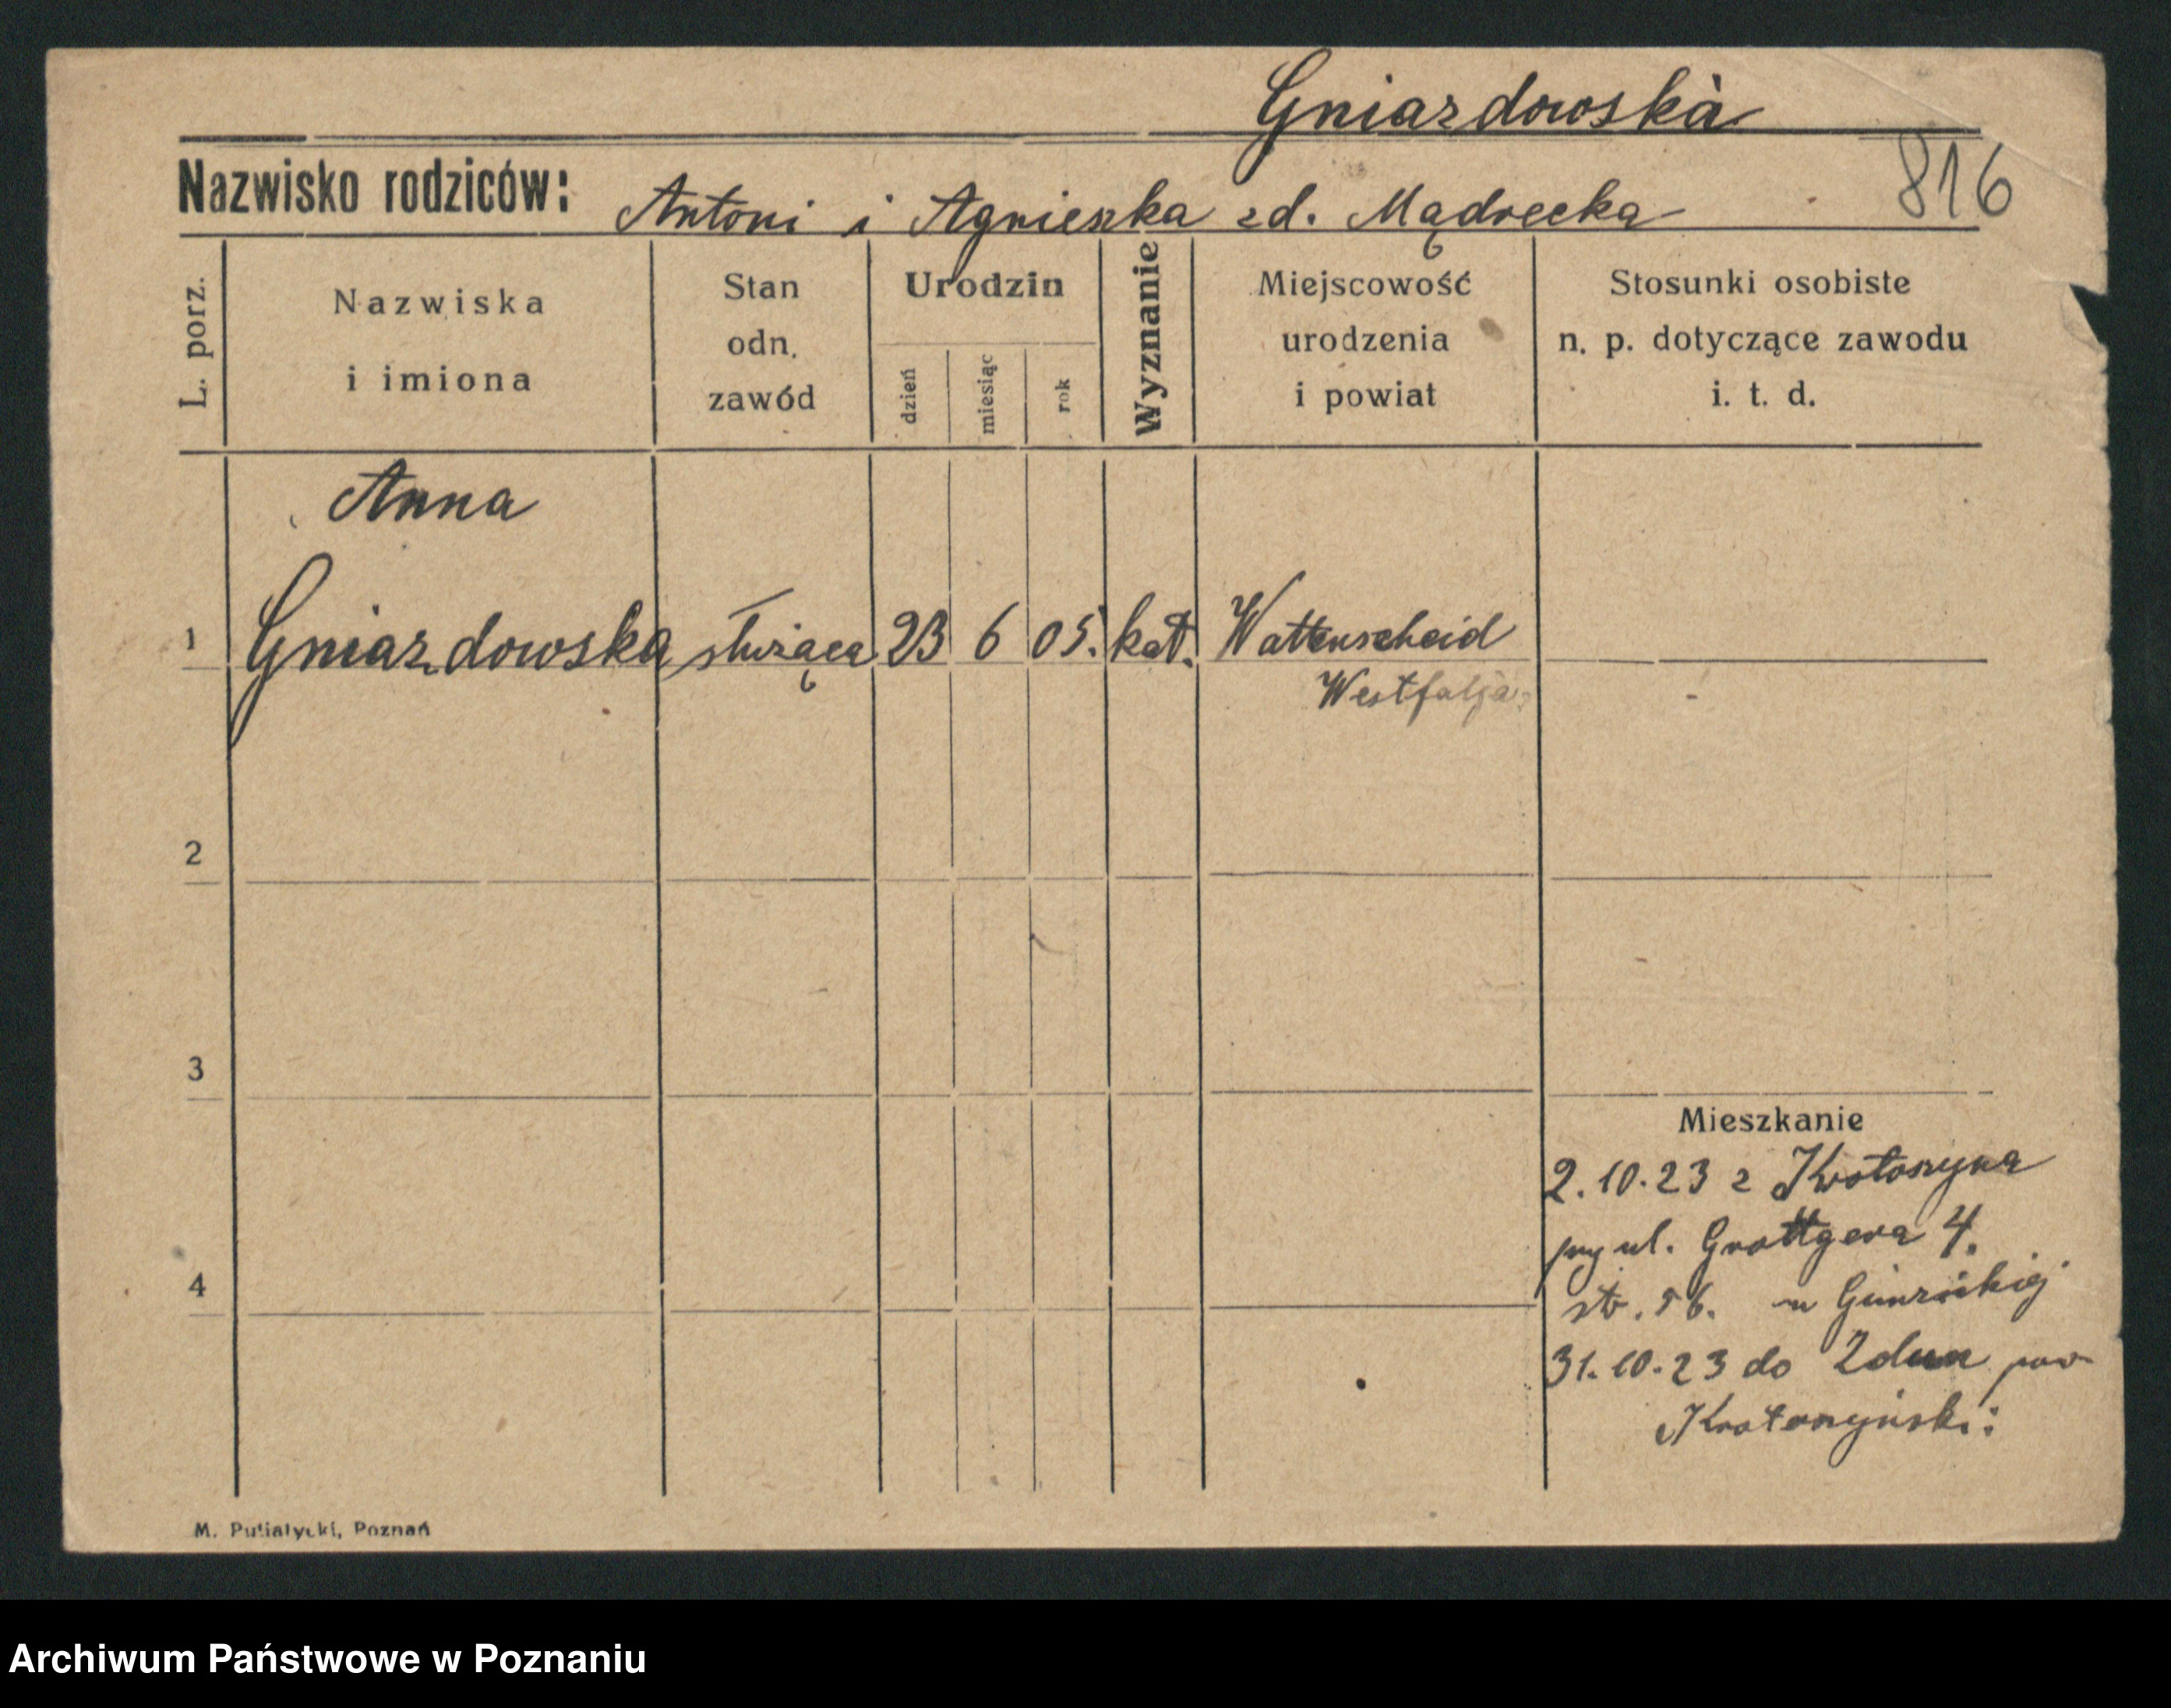 Gniazdowska
816
Nazwisko rodziców: Antoni i Agnieszka zd. Mądrecka
L. porz.
Nazwiska
i imiona
Stan
odn.
zawód
Urodzin
dzień
miesiąc
rok
Wyznanie
Miejscowość
urodzenia
i powiat
Stosunki osobiste
n. p. dotyczące zawodu
i. t. d.
Anna
1 Gniazdowska służąca 23 6 05. kat. Wattenscheid
Westfalja
2
3
4
Mieszkanie
2.10.23 z Krotoszyna
przy ul. Grottgera 4.
str. 56. u
31.10.23 do Zdun pow
Krotoszyński
M. Putiatycki, Poznań
Archiwum Państwowe w Poznaniu